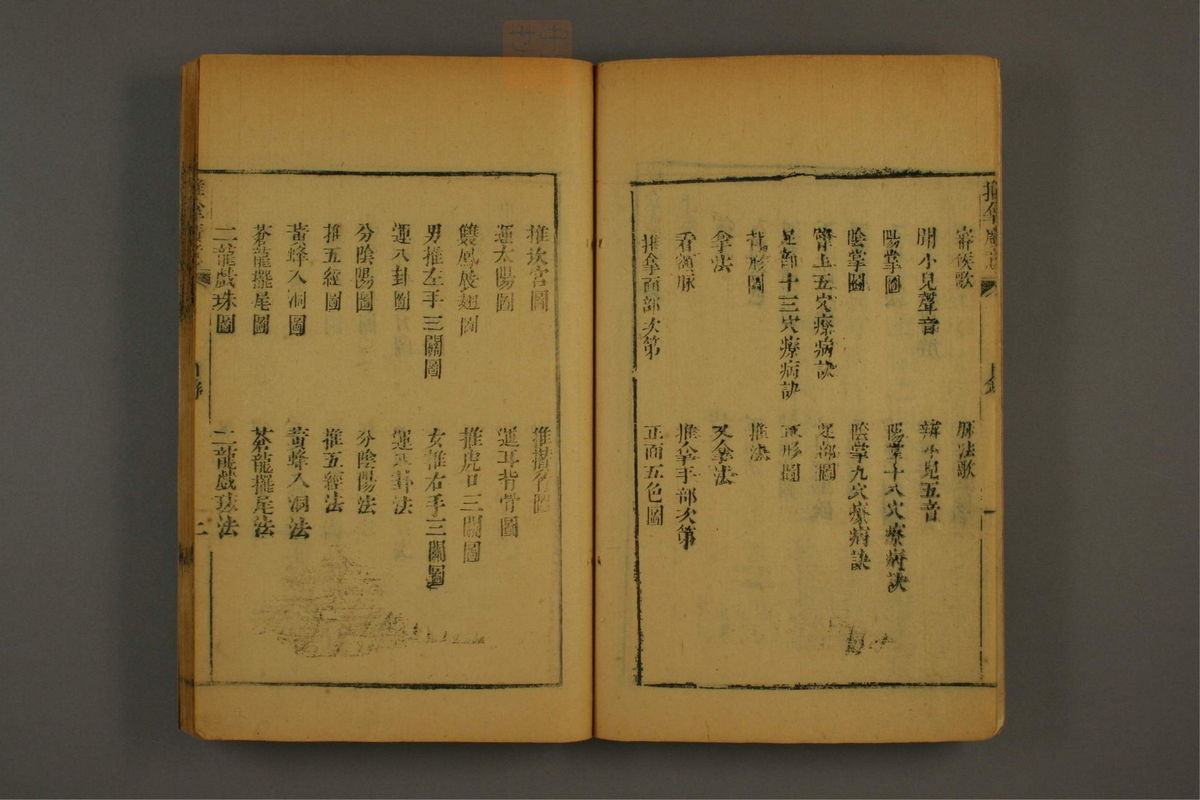 審候歌
脈法歌
聽小兒聲音
辨小兒五音
陽掌圖
陽掌十八穴療病訣
陰掌圖
陰掌九穴療病訣
臂上五穴療病訣
足部圖
足部十三穴療病訣
正形圖
背形圖
推法
拿法
又拿法
看額脉
推拿手部次第
推拿面部次第
正面五色圖
推坎宮圖
推攢竹圖
運太陽圖
運耳背骨圖
雙鳳展翅圖
推虎口三關圖
男推左手三關圖
女推右手三關圖
運八卦圖
運八卦法
分陰陽圖
分陰陽法
推五經圖
推五經法
黃蜂入洞圖
黃蜂入洞法
蒼龍擺尾圖
蒼龍擺尾法
二龍戲珠圖
二龍戲珠法
目錄
二